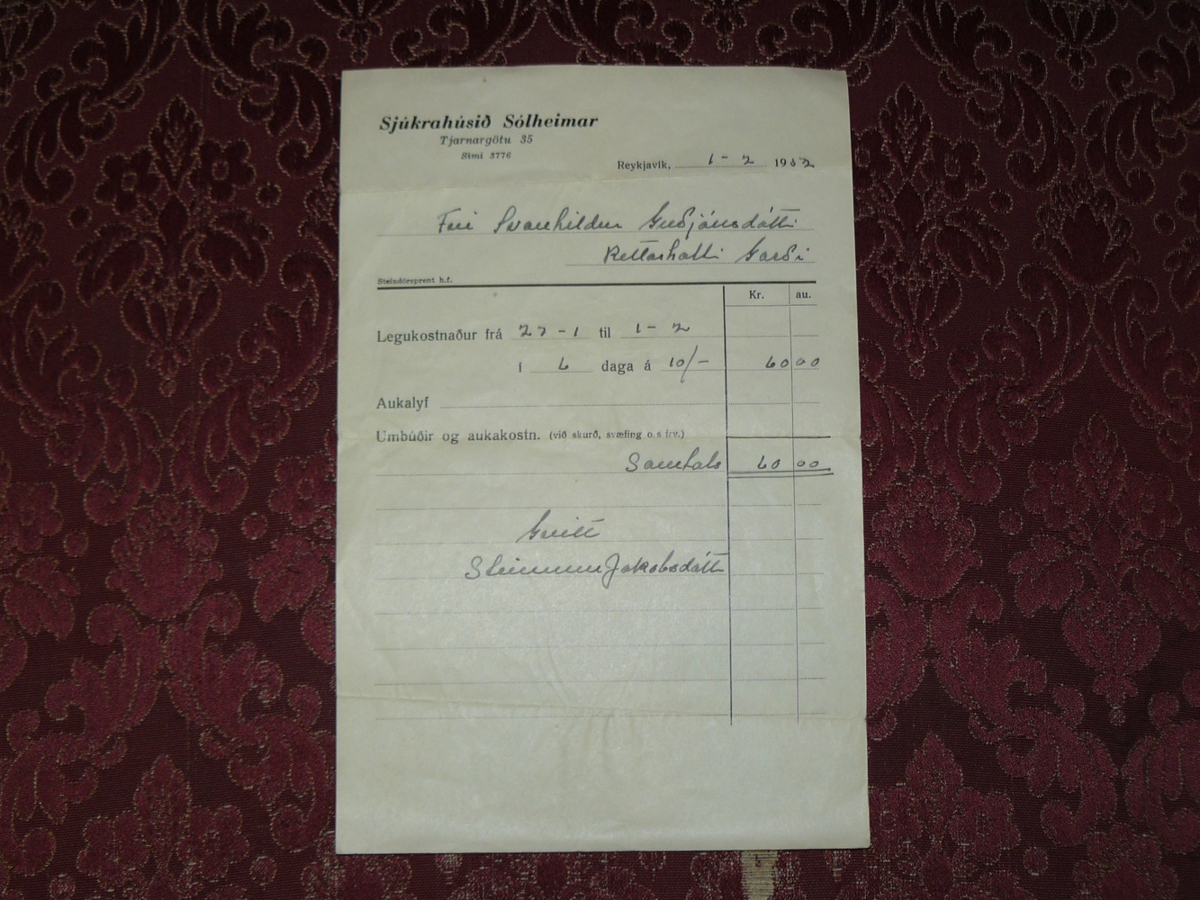 Sjúkrahúsið Sólheimar
Tjarnargötu 35
Sími 3776
Reykjavík, 1-2 19
Frú Svanhildur Guðjónsdóttir
Réttarholti Garði
Steindórsprent h.f.
Kr. au.
Legukostnaður frá 27-1 til 1-2
í 6 daga á 10/- 60 00
Aukalyf
Umbúðir og aukakostn. (við skurð, svæfing o.s frv.)
Samtals 60 00
Kvitt
Steinunn Jakobsdóttir